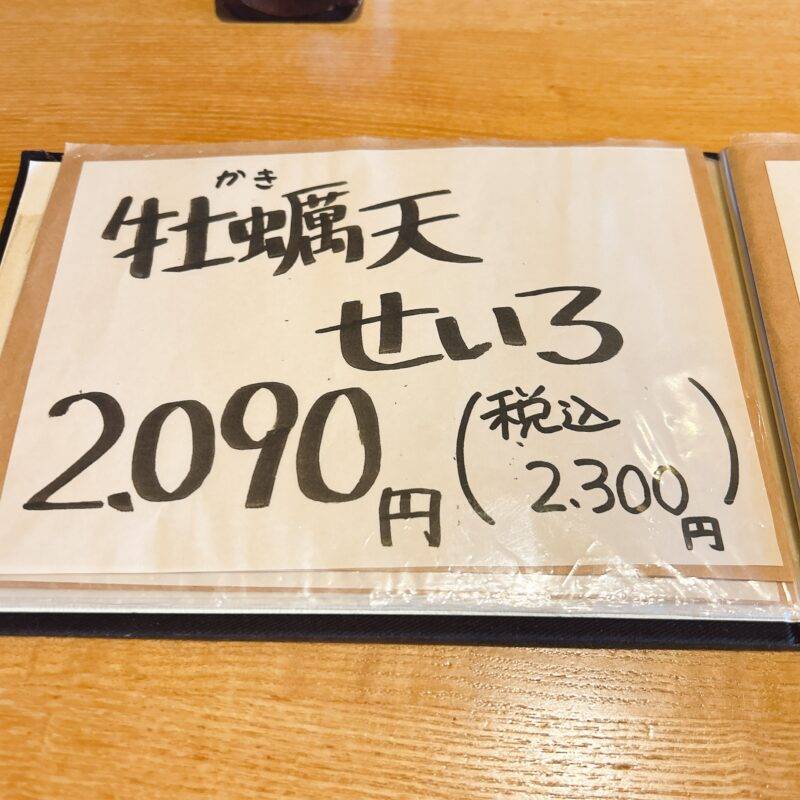 かき
牡蠣天
せいろ
2.090円
(税込
2.300円)